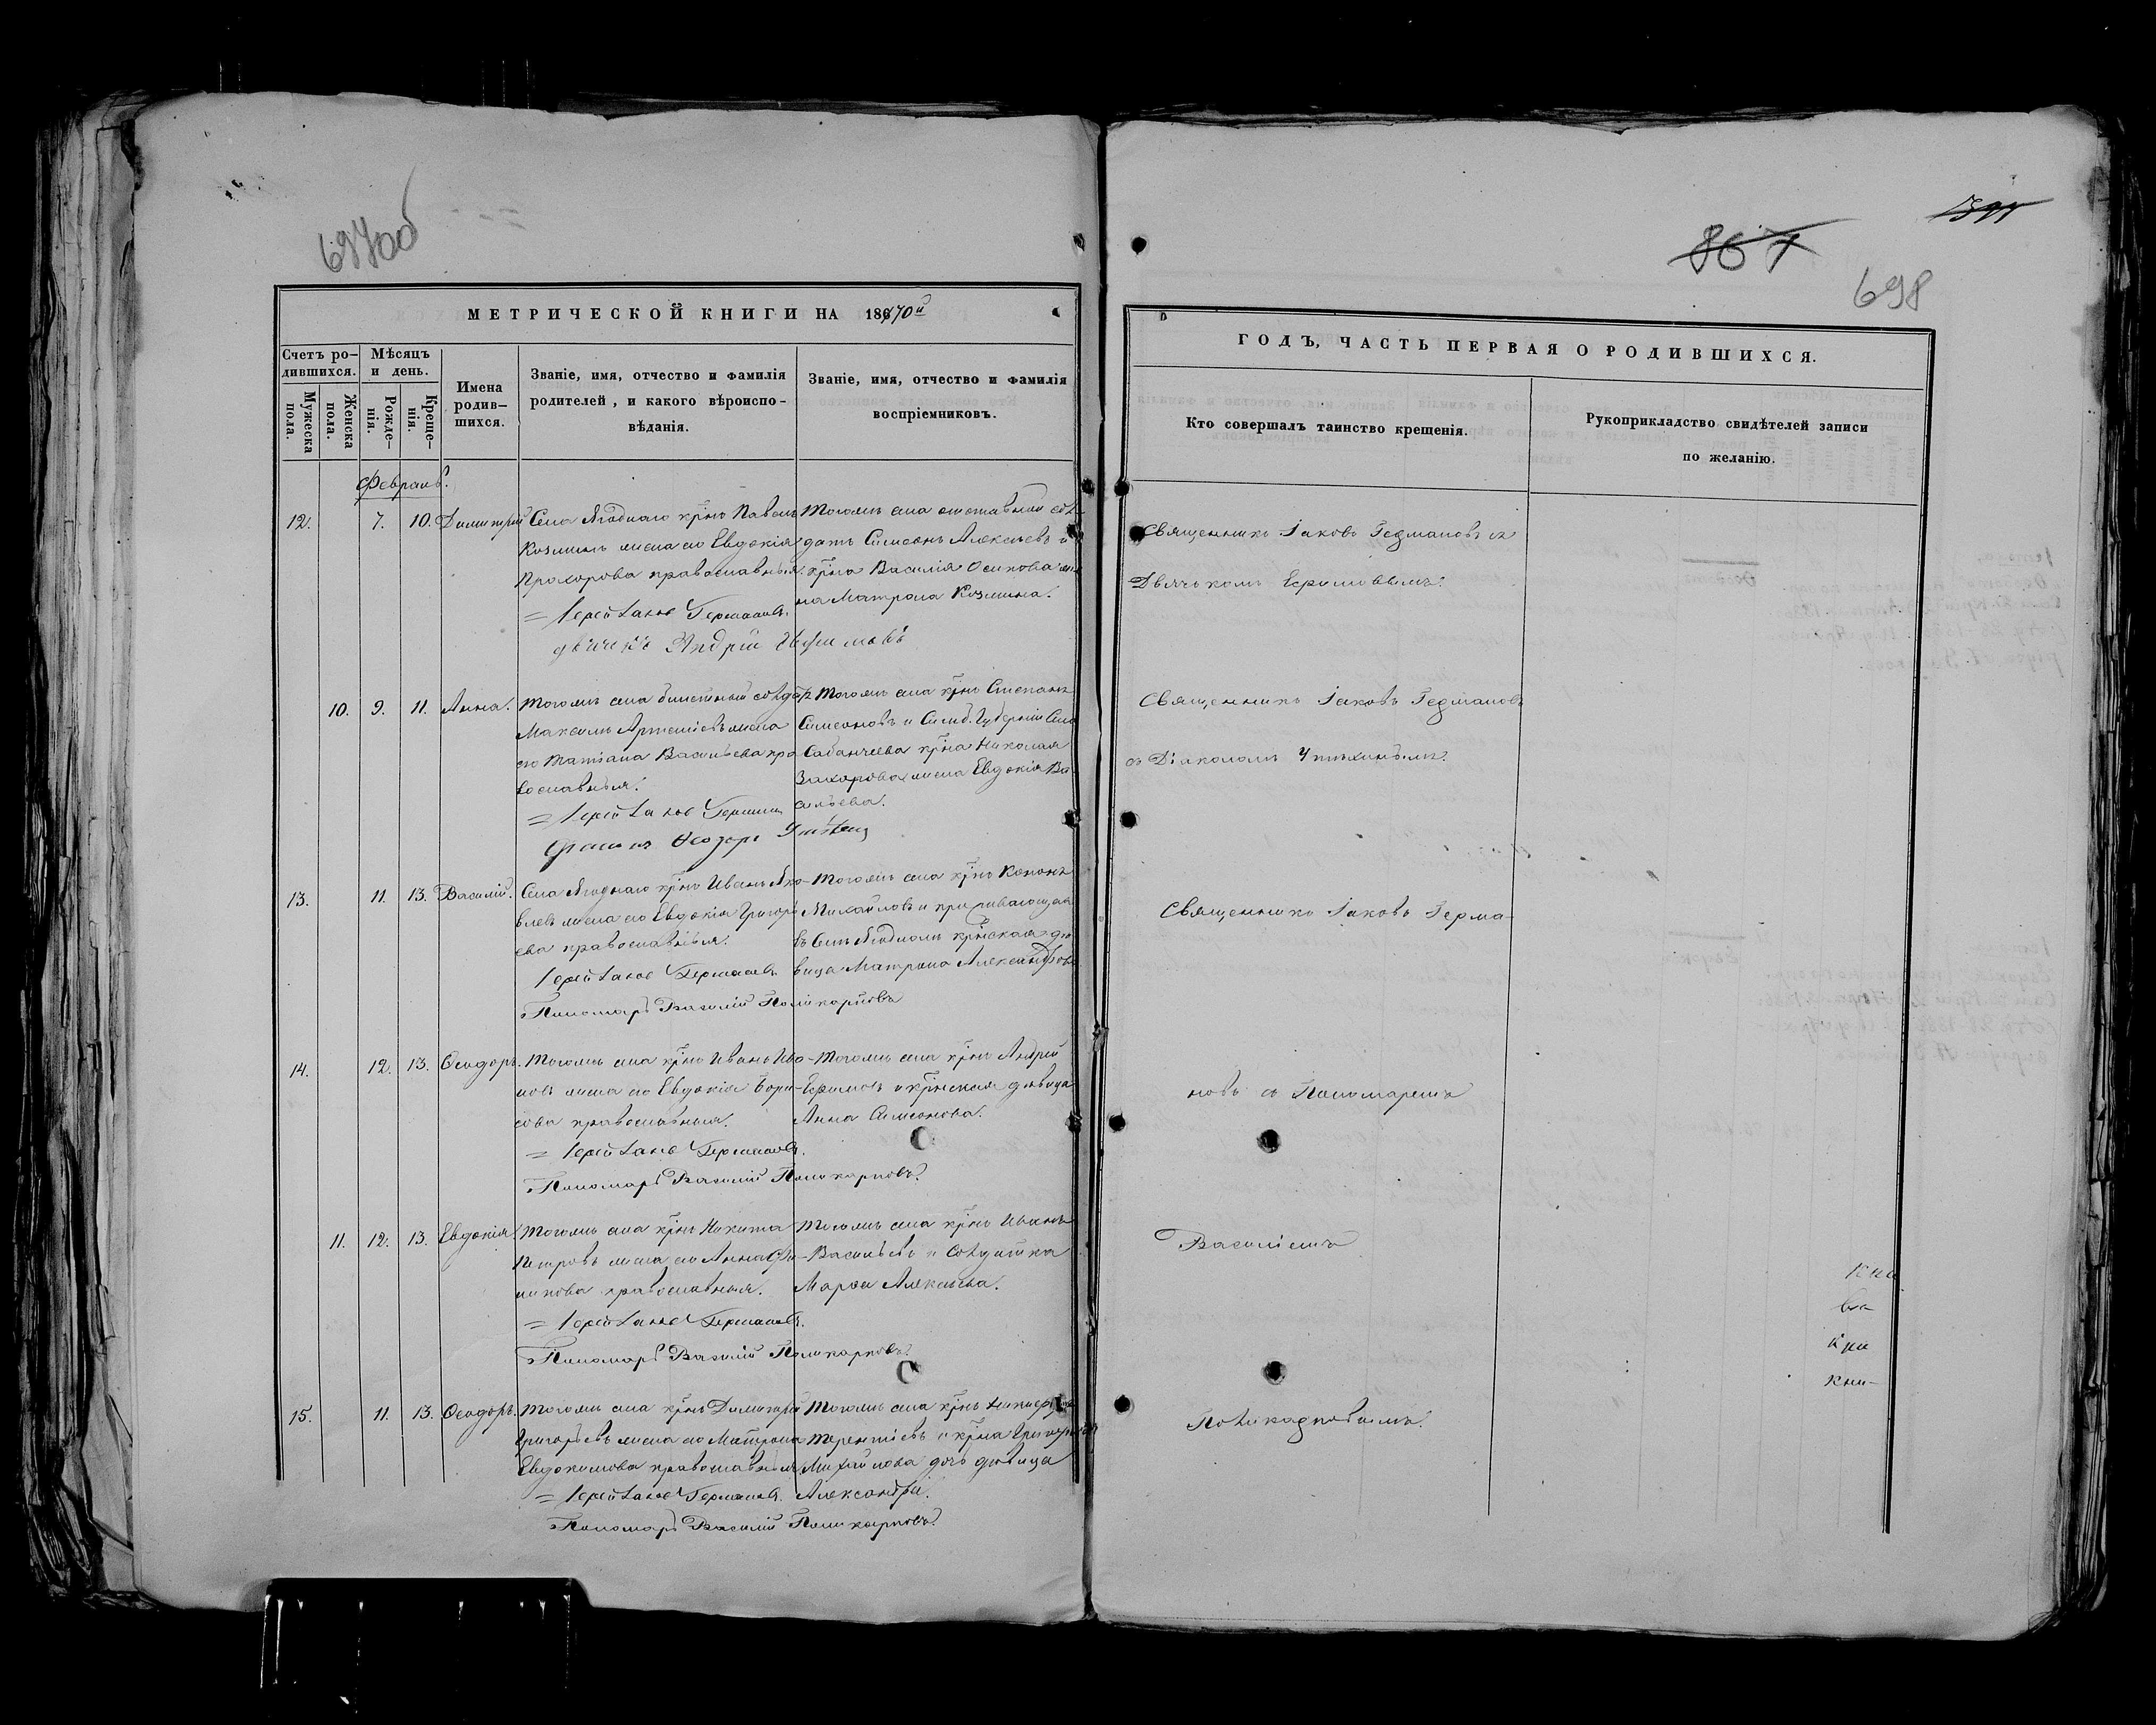 697об
867
698
МЕТРИЧЕСКОЙ КНИГИ НА 1870й
Счетъ ро-
дившихся.
Мѣсяцъ
и день.
Мужеска
пола.
Женска
пола.
Рожде-
нія.
Креще-
нія.
Имена
родив-
шихся.
Званіе, имя, отчество и фамилія
родителей, и какого вѣроиспо-
вѣданія.
Званіе, имя, отчество и фамилія
воспріемниковъ.
Февраль.
12. 7. 10. Димитрій
Села Ягоднаго крнъ Павелъ
Козминъ жена его Евдокія
Прохорова православныя.
= Іерей Іаковъ Германовъ.
дьячекъ Андрей Ефимовъ
Тогожъ села отставной сол
датъ Симеонъ Алексѣевъ и
крна Василія Осипова же
на Матрона Козмина.
10. 9. 11. Анна.
Тогожъ села билетный солдатъ
Максимъ Артемьевъ жена
его Татіана Васильева пра
вославныя.
= Іерей Іаковъ Германовъ
Тогожъ села крнъ Степанъ
Симеоновъ и Симб. Губерніи Села
Сабанчеева крна Николая
Захарова жена Евдокія Ва
сильева.
13. 11. 13. Василій.
Села Ягоднаго крнъ Иванъ Яко-
влевъ жена его Евдокія Григорь
ева православныя.
Іерей Іаковъ Германовъ
Пономарь Василій Поликарповъ
Тогожъ села крнъ Кононъ
Михайловъ и проживающая
въ Селѣ Ягодномъ крнская дѣ
вица Матрона Александрова
14. 12. 13. Ѳеодоръ.
Тогожъ села крнъ Иванъ Ива-
новъ жена его Евдокія Бори-
сова православныя.
= Іерей Іаковъ Германовъ.
Пономарь Василій Поликарповъ.
Тогожъ села крнъ Андрей
Ефимовъ и крнская дѣвица
Анна Симеонова.
11. 12. 13. Евдокія.
Тогожъ села крнъ Никита
Петровъ жена его Анна Фи-
липова православныя.
= Іерей Іаковъ Германовъ.
Пономарь Василій Поликарповъ.
Тогожъ села крнъ Иванъ
Васильевъ и Солдатка
Марѳа Алексѣева.
15. 11. 13. Ѳеодоръ.
Тогожъ села крнъ Димитрій
Григорьевъ жена его Матрона
Евдокимова православныя.
= Іерей Іаковъ Германовъ.
Пономарь Василій Поликарповъ.
Тогожъ села крнъ Никифоръ
Терентьевъ и крна Григорія
Михайлова дочь дѣвица
Александра.
ГОДЪ, ЧАСТЬ ПЕРВАЯ О РОДИВШИХСЯ.
Кто совершалъ таинство крещенія.
Рукоприкладство свидѣтелей записи
по желанію.
Священникъ Іаковъ Германовъ съ
Дьячькомъ Ефимовымъ.
Священникъ Іаковъ Германовъ
съ Діакономъ
Священникъ Іаковъ Герма-
новъ съ Пономаремъ
Василіемъ
Поликарповымъ.
кни-